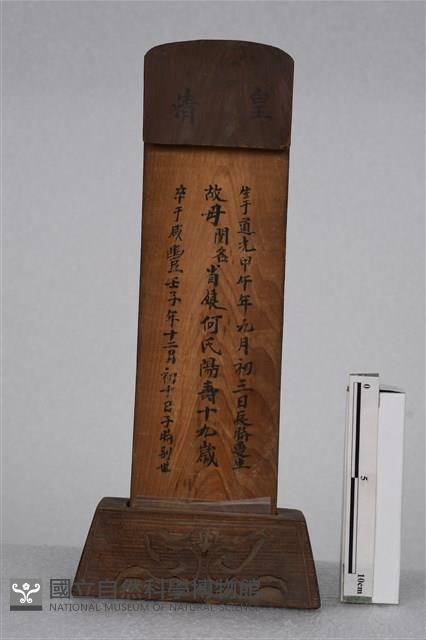 皇清
生于道光甲午年九月初三日辰時建生
故母閨名省娘何氏陽壽十九歲
卒于咸豐壬子年十二月初十日子時別世
0
5
10cm
國立自然科學博物館
NATIONAL MUSEUM OF NATURAL SCIENCE